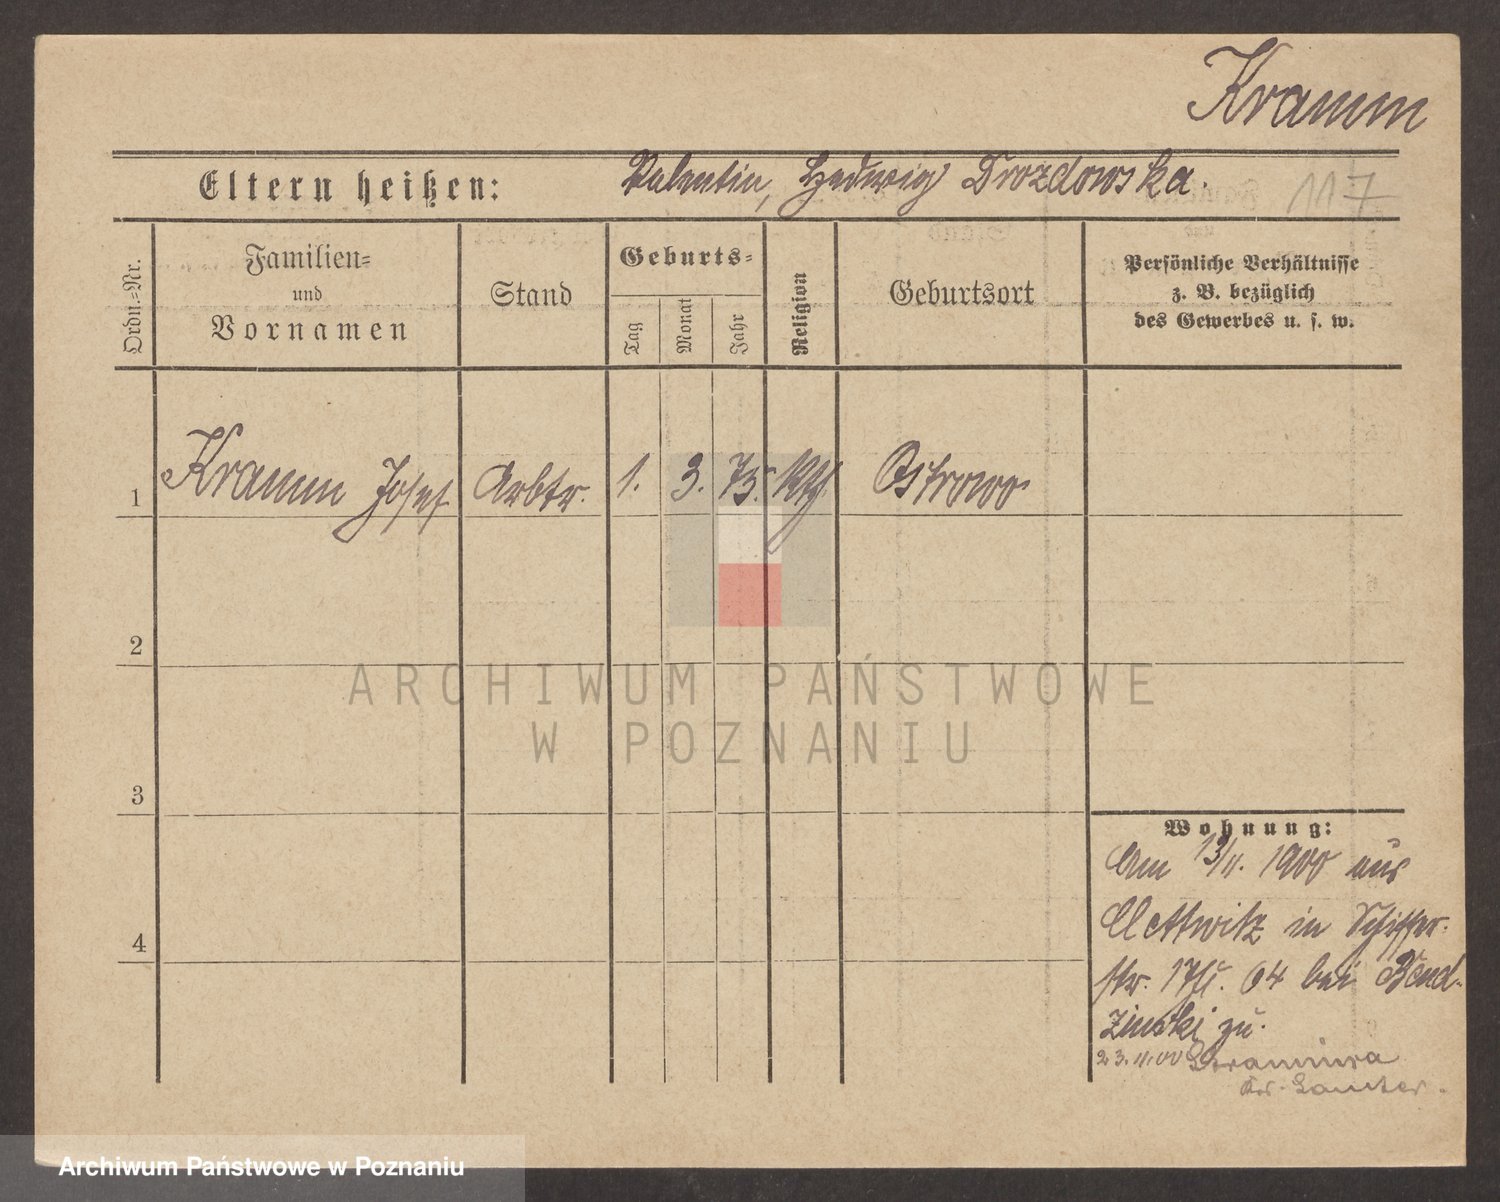 Kramm
Eltern heißen: Valentin, Hedwig Drozdowska.
117
Ordn.=Nr.
Familien=
und
Vornamen
Stand
Geburts=
Tag
Monat
Jahr
Religion
Geburtsort
Persönliche Verhältnisse
z. B. bezüglich
des Gewerbes u. s. w.
1 Kramm Josef Arbtr. 1. 3. 75. kth. Ostrowo
2
3
4
Wohnung:
Am 13/11. 1900 aus
in Schiffer-
str. 17/I. 64 bei Bend-
zinski zu.
23.11.00
ARCHIWUM PAŃSTWOWE
W POZNANIU
Archiwum Państwowe w Poznaniu